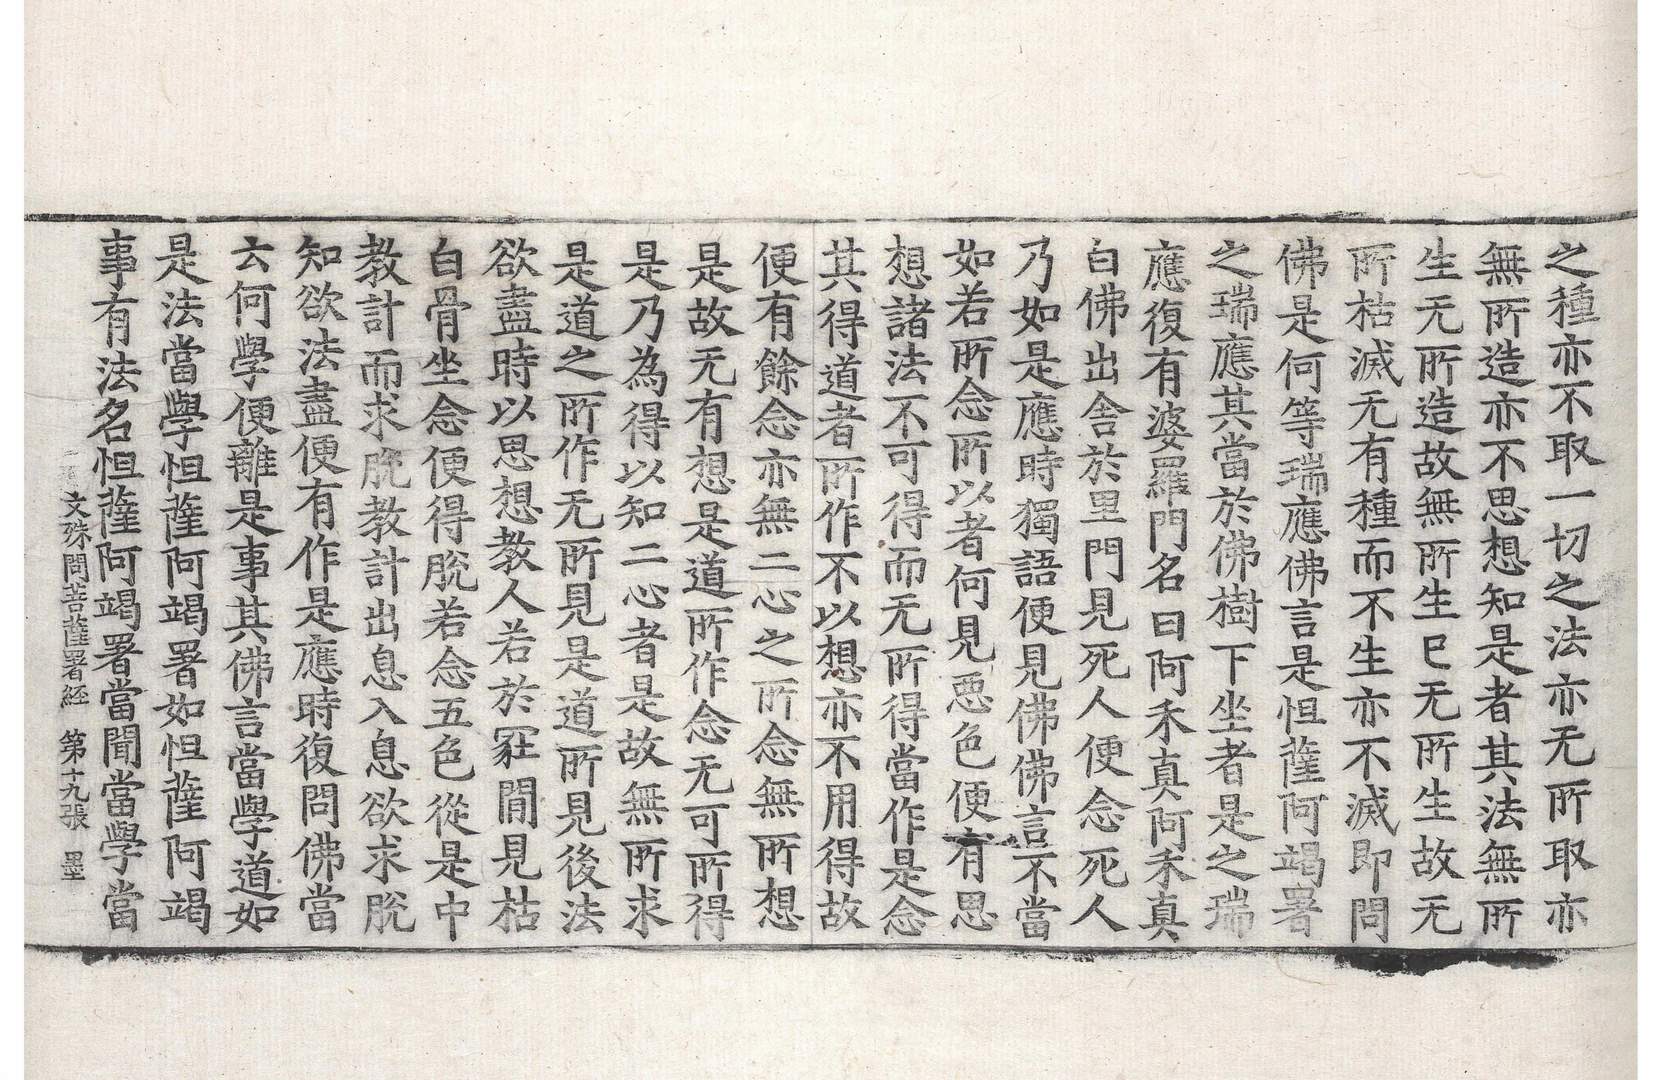 之種亦不取一切之法亦无所取亦
無所造亦不思想知是者其法無所
生无所造故無所生已无所生故无
所枯滅无有種而不生亦不滅即問
佛是何等瑞應佛言是怛薩阿竭署
之瑞應其當於佛樹下坐者是之瑞
應復有婆羅門名曰阿禾真阿禾真
白佛出舍於里門見死人便念死人
乃如是應時獨語便見佛佛言不當
如若所念所以者何見惡色便有思
想諸法不可得而无所得當作是念
其得道者所作不以想亦不用得故
便有餘念亦無二心之所念無所想
是故无有想是道所作念无可所得
是乃為得以知二心者是故無所求
是道之所作无所見是道所見後法
欲盡時以思想教人若於冢間見枯
白骨坐念便得脫若念五色從是中
教計而求脫教計出息入息欲求脫
知欲法盡便有作是應時復問佛當
云何學便離是事其佛言當學道如
是法當學怛薩阿竭署如怛薩阿竭
事有法名怛薩阿竭署當聞當學當
文殊問菩薩署經 第十九張 墨